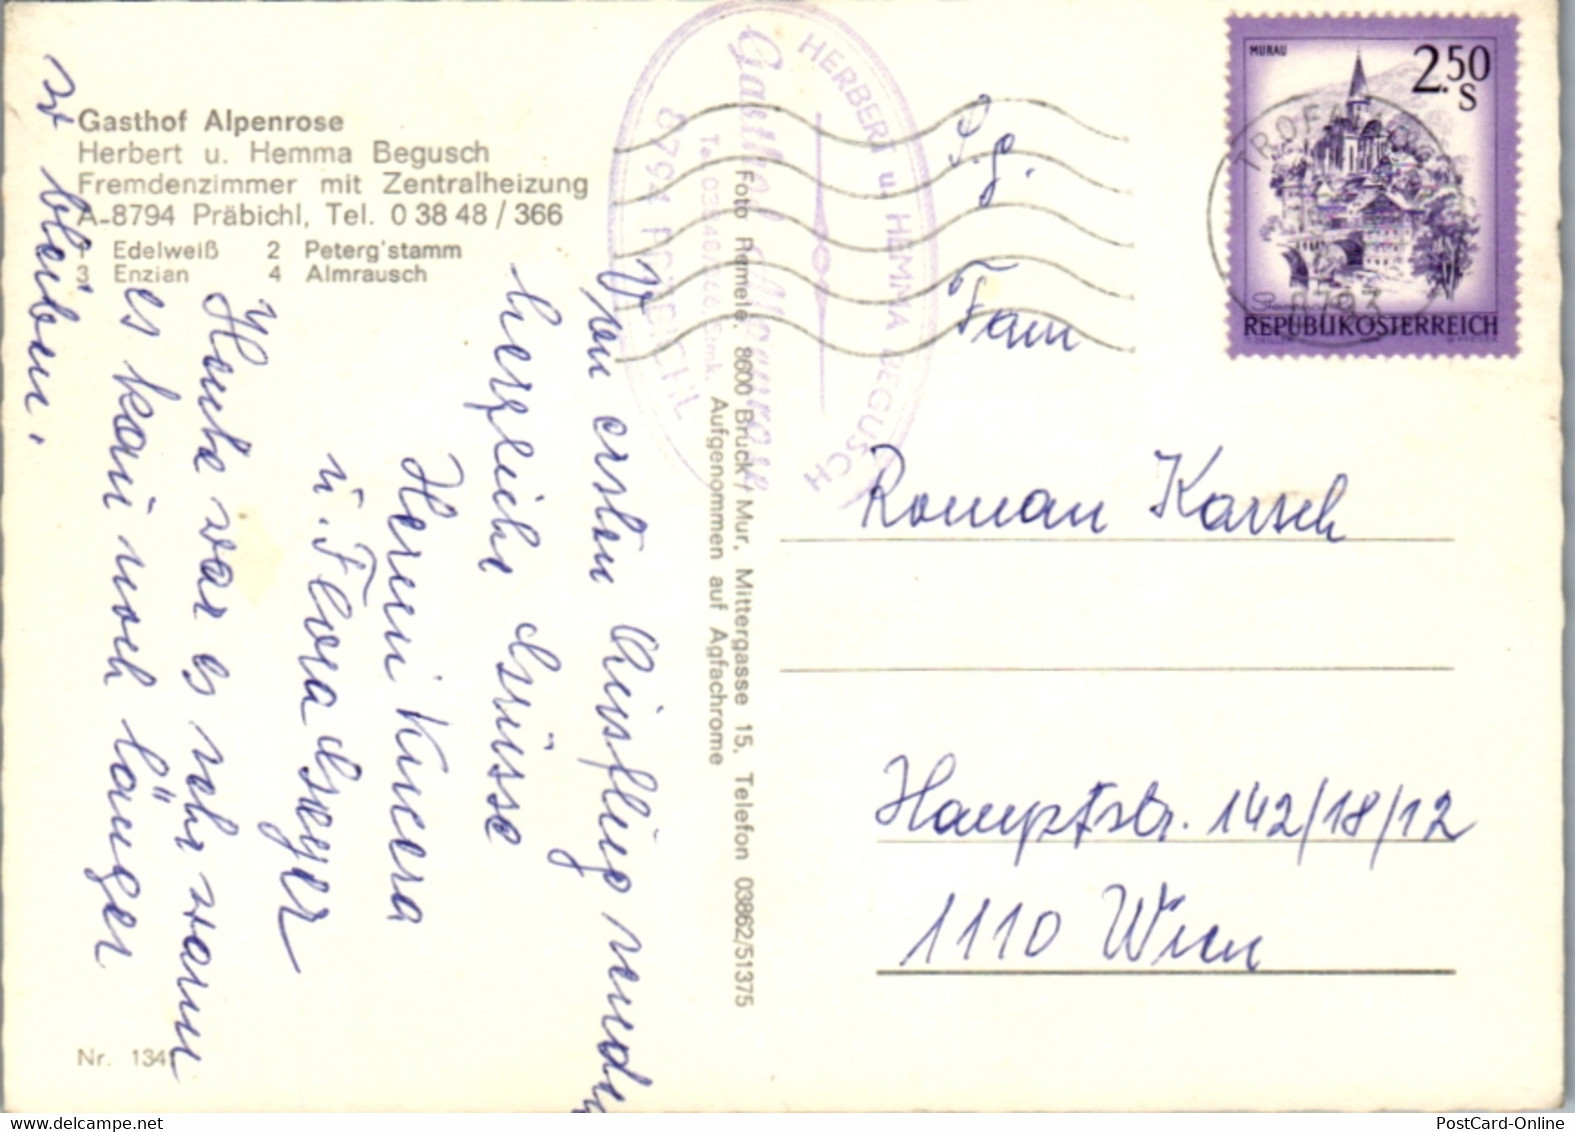 Gasthof Alpenrose
Herbert u. Hemma Begusch
Fremdenzimmer mit Zentralheizung
A-8794 Präbichl, Tel. 0 38 48 / 366
1 Edelweiß 2 Peterg'stamm
3 Enzian 4 Almrausch
Vom ersten Ausflug
herzliche Grüsse
Hermi Kucera
u. Flora
Heute war es sehr warm
es kann noch länger
so bleiben.
Nr. 134
Foto Remele, 8600 Bruck/Mur, Mittergasse 15, Telefon 03862/51375
Aufgenommen auf Agfachrome
HERBERT u. HEMMA BEGUSCH
Gasthof Alpenrose
8794 PRÄBICHL
MURAU
2.50
S
REPUBLIK ÖSTERREICH
8793
P.g.
Fam
Roman Karsch
Hauptstr. 142/18/12
1110 Wien
PostCard-Online